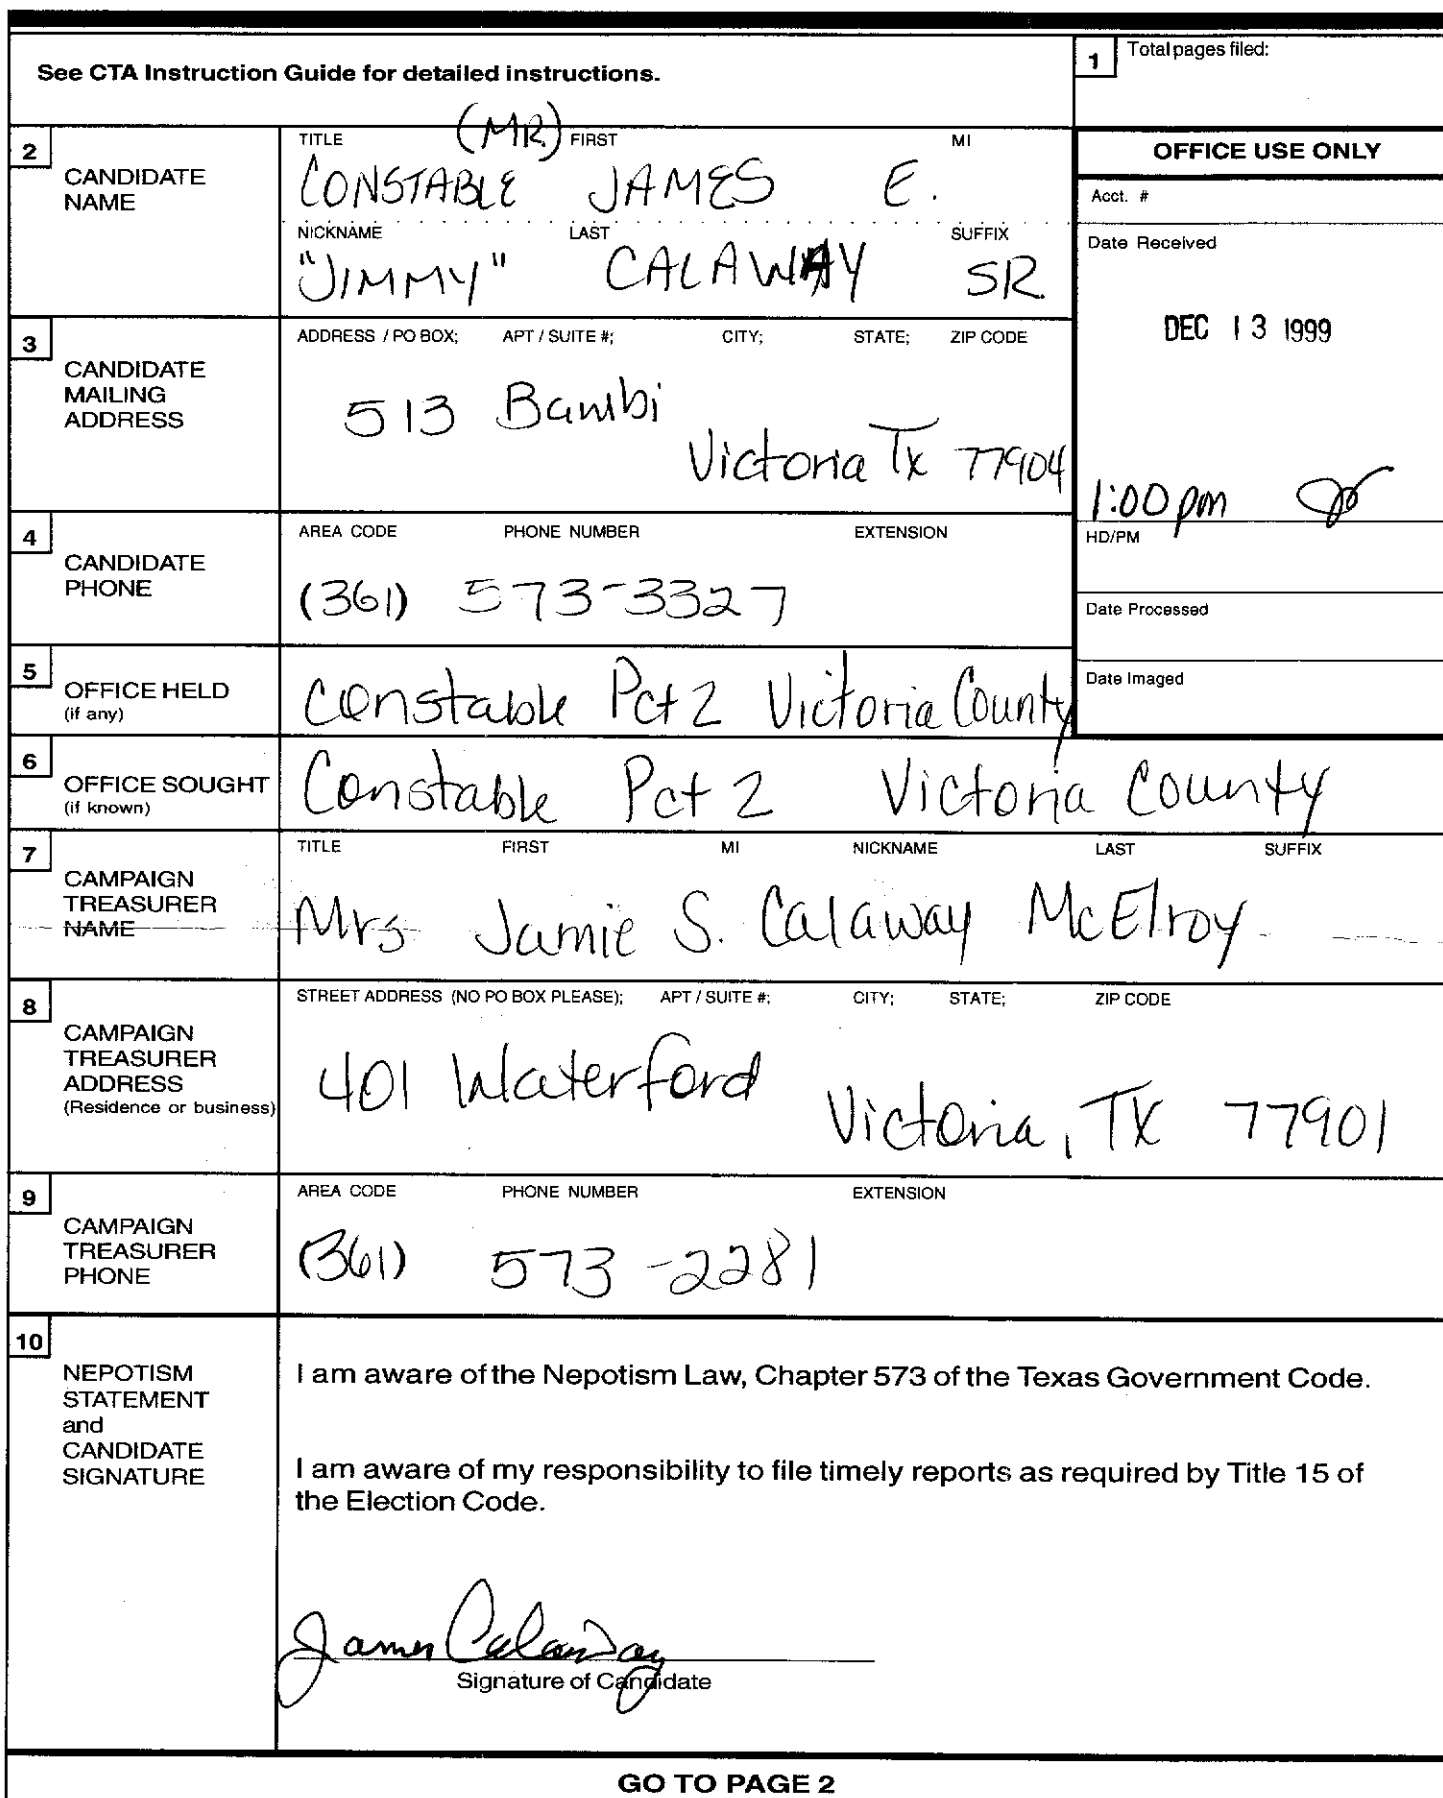 See CTA Instruction Guide for detailed instructions.
1 Total pages filed:
2 CANDIDATE NAME
TITLE (MR.) FIRST MI
CONSTABLE JAMES E.
NICKNAME LAST SUFFIX
"JIMMY" CALAWAY SR.
OFFICE USE ONLY
Acct. #
Date Received
DEC 13 1999
1:00 pm
HD/PM
Date Processed
Date Imaged
3 CANDIDATE MAILING ADDRESS
ADDRESS / PO BOX; APT / SUITE #; CITY; STATE; ZIP CODE
513 Bambi
Victoria Tx 77904
4 CANDIDATE PHONE
AREA CODE PHONE NUMBER EXTENSION
(361) 573-3327
5 OFFICE HELD
(if any)
Constable Pct 2 Victoria County
6 OFFICE SOUGHT
(if known)
Constable Pct 2 Victoria County
7 CAMPAIGN TREASURER NAME
TITLE FIRST MI NICKNAME LAST SUFFIX
Mrs Jamie S. Calaway McElroy
8 CAMPAIGN TREASURER ADDRESS
(Residence or business)
STREET ADDRESS (NO PO BOX PLEASE); APT / SUITE #; CITY; STATE; ZIP CODE
401 Waterford
Victoria, TX 77901
9 CAMPAIGN TREASURER PHONE
AREA CODE PHONE NUMBER EXTENSION
(361) 573-2281
10 NEPOTISM STATEMENT and CANDIDATE SIGNATURE
I am aware of the Nepotism Law, Chapter 573 of the Texas Government Code.
I am aware of my responsibility to file timely reports as required by Title 15 of
the Election Code.
James Calaway
Signature of Candidate
GO TO PAGE 2